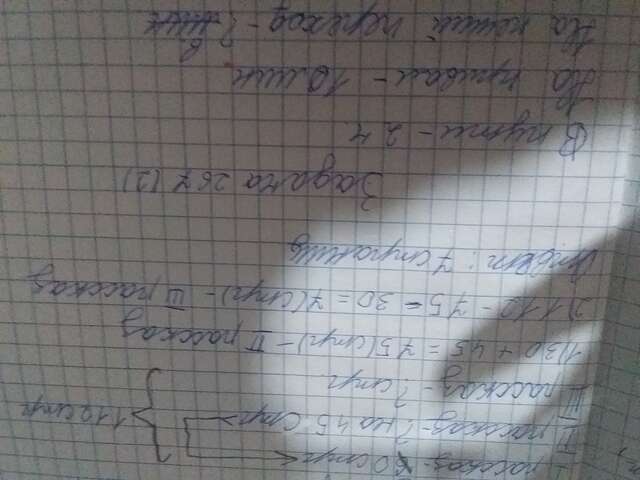 I рассказ - 60 стр
II рассказ - ? на 45 стр > 112 стр
III рассказ - ? стр
1) 30 + 45 = 75 (стр) - II рассказ
2) 112 - 75 - 30 = 7 (стр) - III рассказ
Ответ: 7 страниц
Задача 267 (2)
В пути - 2 ч.
На привал - 10 мин
На пеший переход - ? в